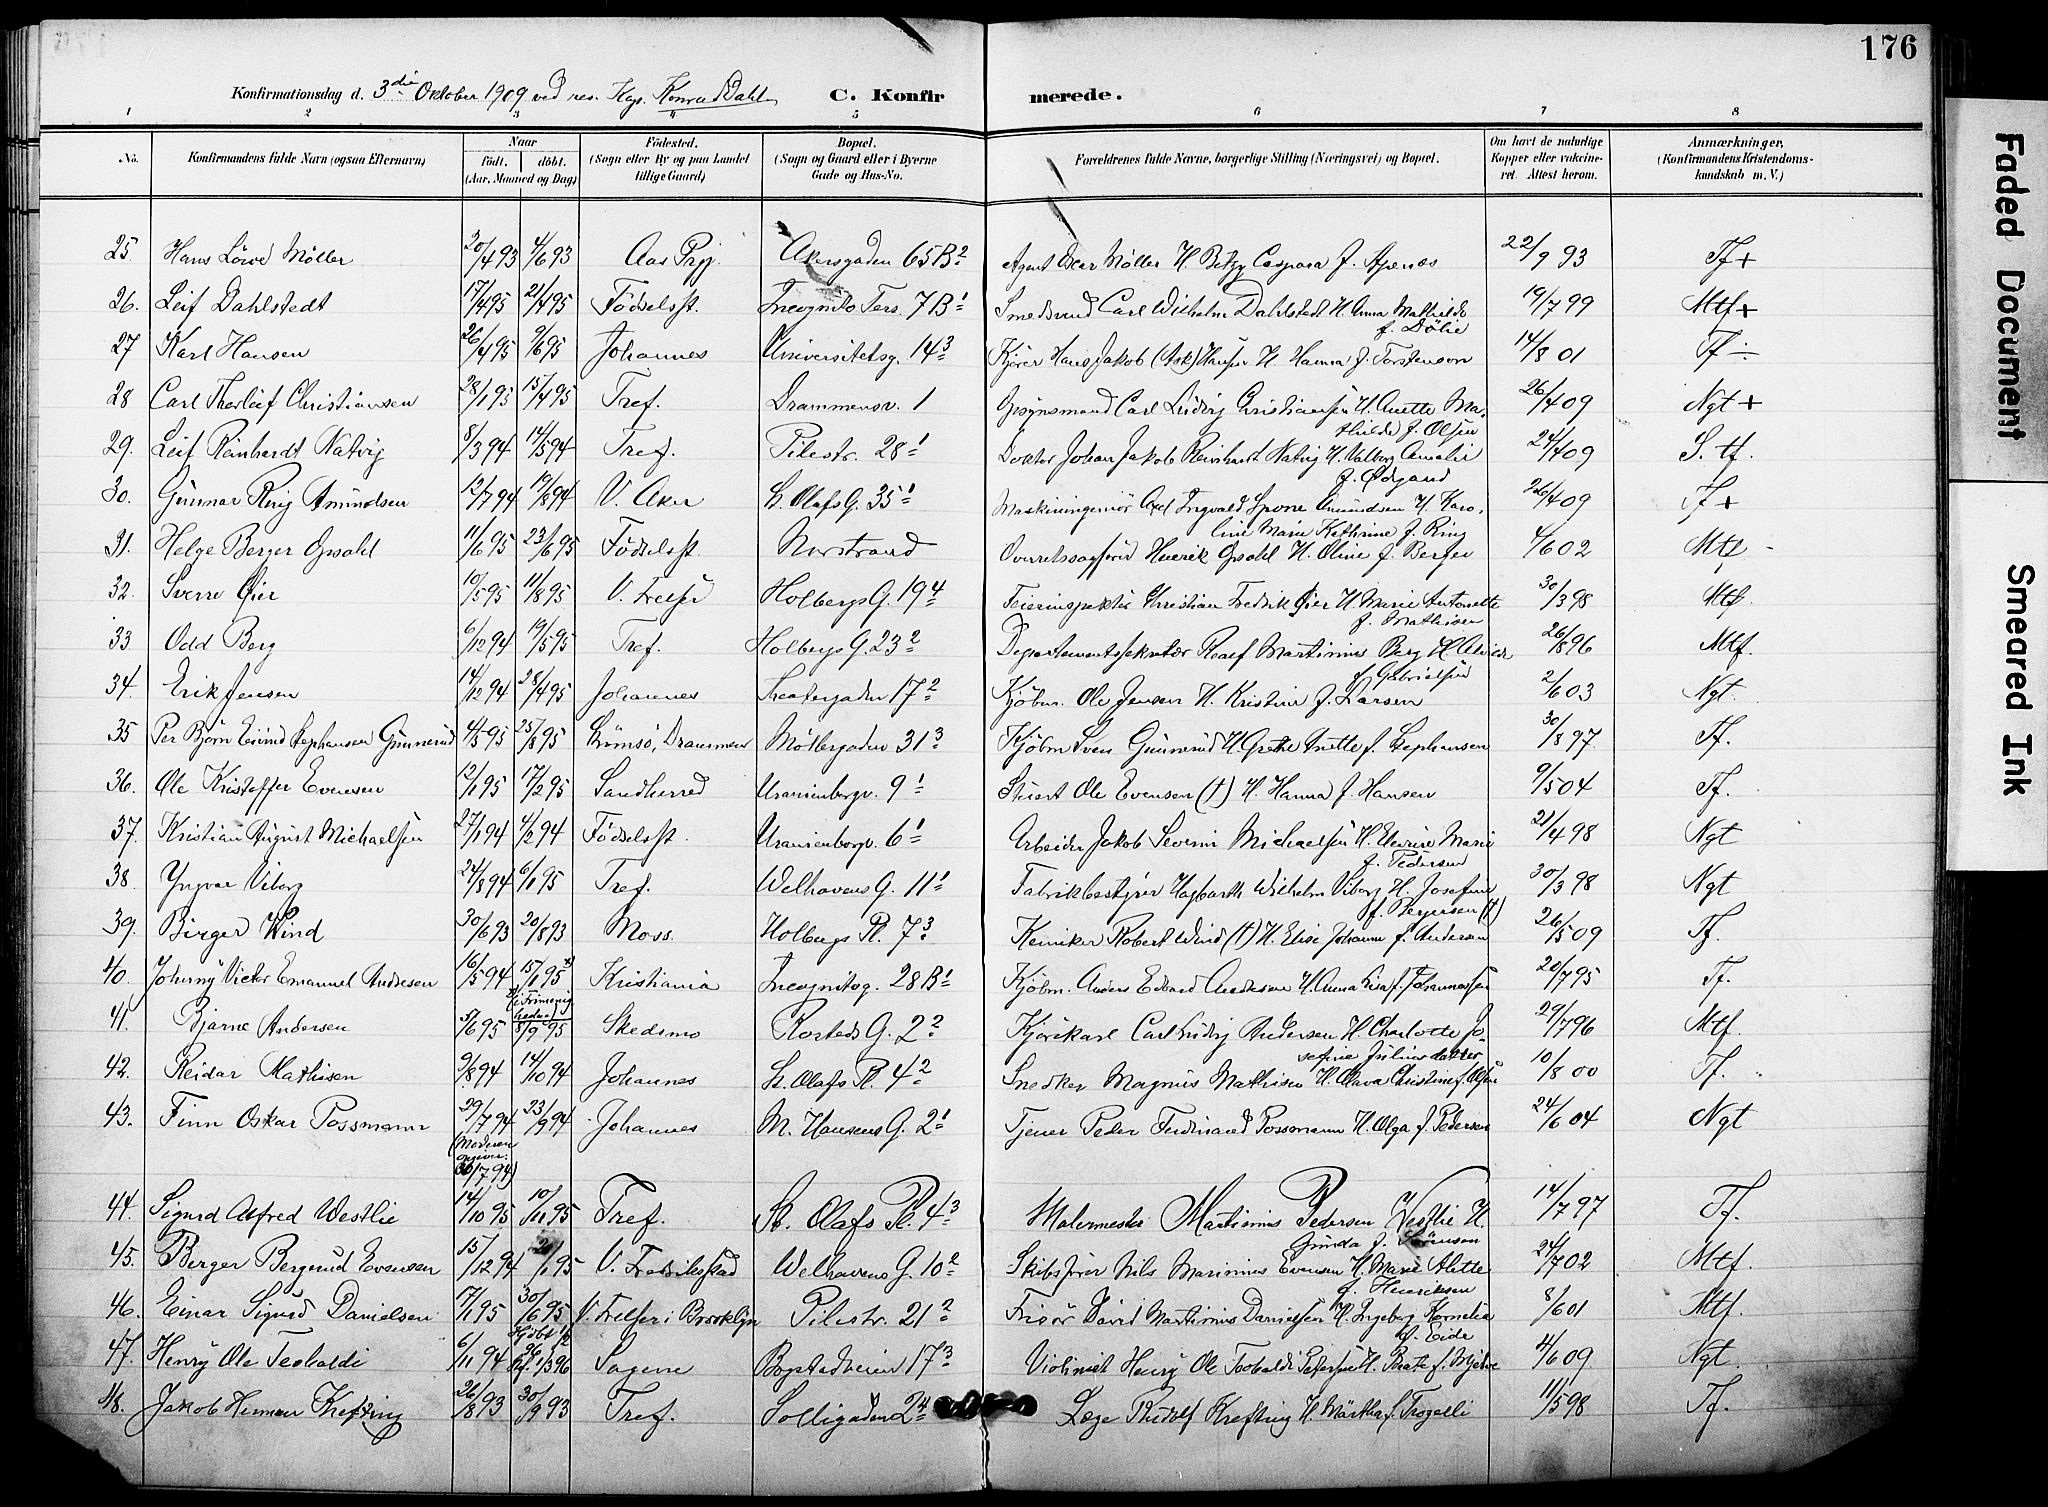 176
Konfirmationsdag d. 3die Oktober 1909 ved res. Kap. Konrad Dahl C. Konfirmerede.
1 2 3 4 5 6 7 8
No. Konfirmandens fulde Navn (ogsaa Efternavn) Naar født. døbt. (Aar, Maaned og Dag) Fødested. (Sogn eller By og paa Landet tillige Gaard) Bopæl. (Sogn og Gaard eller i Byerne Gade og Hus-No. Forældrenes fulde Navne, borgerlige Stilling (Næringsvei) og Bopæl. Om havt de naturlige Kopper eller vaccineret. Attest herom. Anmærkninger, (Konfirmandens Kristendomskundskab m. V.)
25. Hans Löwe Möller 20/4 93 4/6 93 Aas Prgj. Akersgaden 65 B 2 Agent Oscar Møller H. Betzy Caspara f. Apenæs 22/9 93 Tf +
26. Leif Dahlstedt 17/4 95 21/4 95 Födselsst. Incognito Ters. 7 B 1 Smedsvend Carl Wilhelm Dahlstedt H. Anna Mathilde f. Dölie 19/7 99 Mtf +
27 Karl Hansen 26/4 95 9/6 95 Johannes Universitetsg. 14 3 Kjører Hans Jakob (Ask) Hansen H. Hanna f. Torstenson 14/8 01 Tf
28 Carl Thorleif Christiansen 28/1 95 15/4 95 Tref. Drammensv. 1 Opsynsmand Carl Ludvig Christiansen H. Anette Mathilde f. Olsen 26/4 09 Ngt +
29. Leif Reinhardt Natvig 8/3 94 14/5 94 Tref. Pilestr. 28 1 Doktor Johan Jakob Reinhardt Natvig H. Valborg Amalie f. Ødegaard 24/4 09 S. tf.
30. Gunnar Ring Amundsen 12/7 94 19/8 94 V. Aker St. Olafs G. 35 1 Maskiningeniör Axel Ingvald Amundsen H. Karoline Marie Kathrine f. Ring 26/4 09 Tf +
31. Helge Berger Opsahl 11/6 95 23/6 95 Födselsst. Norstrand Overretssagförer Henrik Opsahl H. Oline f. Berger 4/6 02 Mtf
32. Sverre Öier 10/5 95 11/8 95 V. Frelser Holbergs G. 19 4 Feierinspektör Christian Fredrik Öier H. Marie Antonette f. Mathisen 30/3 98 Mtf.
33 Odd Berg 6/12 94 19/5 95 Tref. Holbergs G. 23 2 Departementssekretær Martinius Berg H. f. Gabrielsen 26/8 96 Mtf.
34. Erik Jensen 14/12 94 28/4 95 Johannes Theatergaden 17 2 Kjöbm. Ole Jensen H. Kristine f. Larsen 2/6 03 Ngt.
35 Per Björn Eivind Stephansen Gunnerud 4/5 95 25/8 95 Strömsö, Drammen Möllergaden 31 3 Kjöbm Sven Gunnerud H. Grethe Anette f. Stephansen 30/8 97 Tf.
36. Ole Kristoffer Evensen 12/1 95 17/2 95 Sandherred Uranienborgv. 9 1 Stuert Ole Evensen (†) H. Hanna f. Hansen 9/5 04 Tf.
37. Kristian August Michaelsen 27/1 94 4/2 94 Födselsst. Uranienborgv. 6 1 Arbeider Jakob Severin Michaelsen H. Elevine Marie f. Pedersen 21/4 98 Ngt
38. Yngvar Viborg 24/8 94 6/1 95 Tref. Welhavens G. 11 1 Fabrikbestyrer Hagbarth Wilhelm Viborg H. Josefine f. Beyersen (†) 30/3 98 Ngt
39. Birger Wind 30/6 93 20/8 93 Moss. Holbergs Pl. 7 3 Kemiker Robert Wind (†) H. Elise Johanne f. Andersen 26/5 09 Tf.
40. Johnny Victor Emanuel Andresen 16/5 94 15/1 95 Kristiania Incognitog. 28 B 1 Kjöbm. Anders Edvard Andresen H. Anna Lisa f. Johannessen 20/7 95 Tf.
41. Bjarne Andersen 5/6 95 8/9 95 Skedsmo Rosteds G. 2 2 Kjörekarl Carl Ludvig Andersen H. Charlotte Josefine Juliusdatter 29/7 96 Mtf.
42. Reidar Mathisen 9/8 94 14/10 94 Johannes St. Olafs Pl. 4 2 Snedker Magnus Mathisen H. Olava Christine f. Olsen 10/8 00 Tf.
43. Finn Oskar Possmann 29/7 94 (Moderen opgiver: 30/7 94) 23/9 94 Johannes M. Hansens G. 2 1 Tjener Peder Ferdinand Possmann H. Olga f. Pedersen 24/6 04 Ngt
44. Sigurd Alfred Westlie 14/10 95 10/11 95 Tref. St. Olafs Pl. 4 3 Malermester Martinius Pedersen Westlie H. Gunda f. Sörensen 14/7 97 Tf.
45. Berger Bergerud Evensen 15/12 94 20/1 95 V. Fredriksstad Welhavens G. 10 2 Skibsfører Nils Marinius Evensen H. Marie Alette f. Henriksen 24/7 02 Mtf.
46. Einar Sigurd Danielsen 7/1 95 30/6 95 V. Frelser i Brooklyn Pilestr. 21 2 Frisör David Martinius Danielsen H. Ingeborg Kornelia f. Eide 8/6 01 Mtf.
47. Henry Ole Teobaldi 6/11 94 Hjdöbt 1/3 96 Sagene Bogstadveien 17 3 Violinist Henry Ole Teobaldi Petersen H. Beate f. 4/6 09 Ngt.
48. Jakob Herman Krefting 26/8 93 30/9 93 Tref. Solligaden 2 4 Læge Rudolf Krefting H. Märtha f. Trogelli 11/5 98 Tf.
Faded Document
Smeared Ink